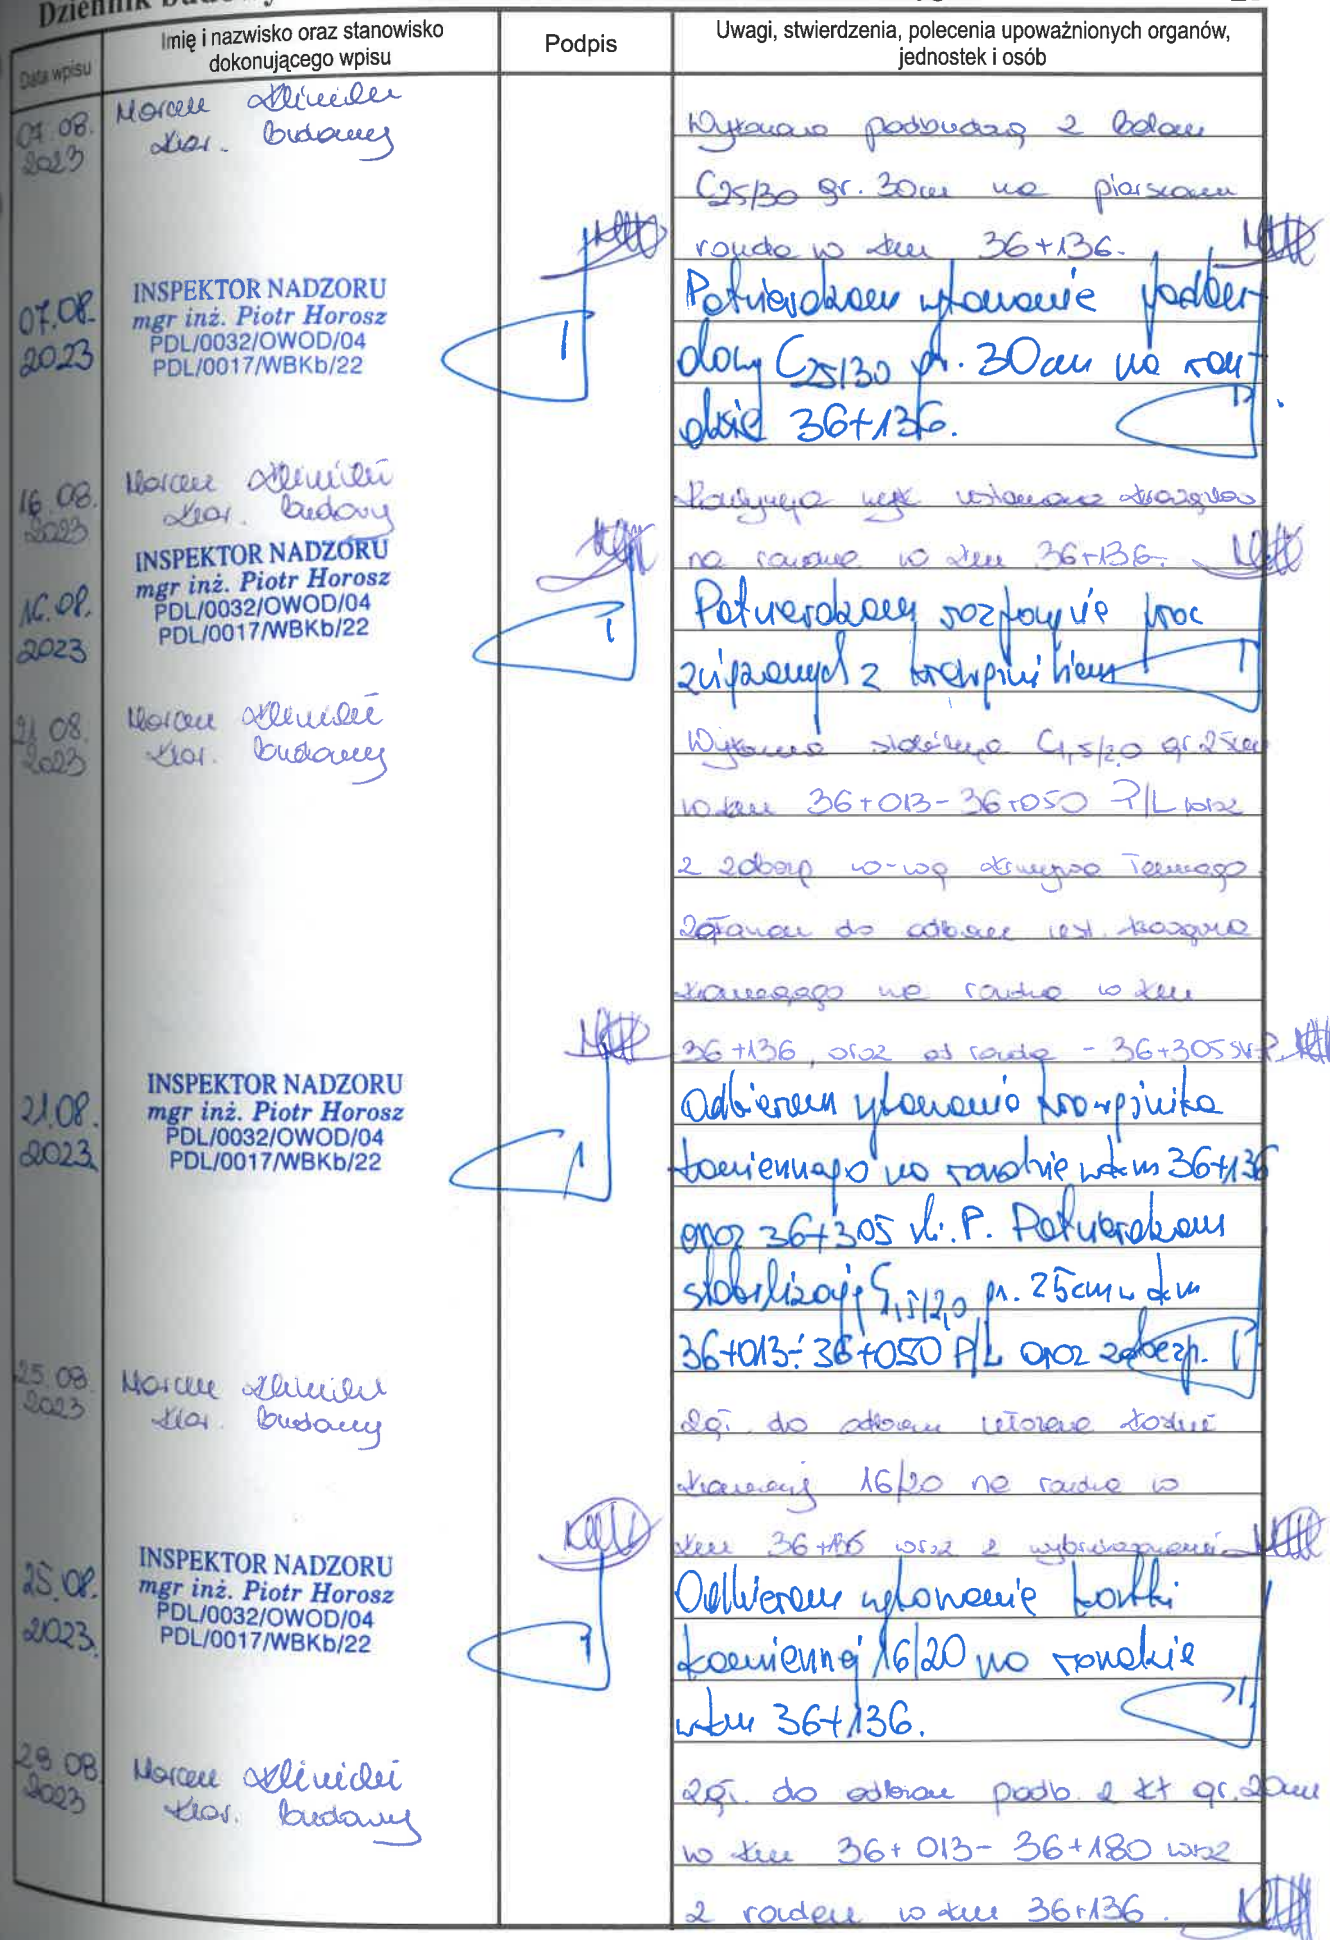 Dziennik
Data wpisu
Imię i nazwisko oraz stanowisko
dokonującego wpisu
Podpis
Uwagi, stwierdzenia, polecenia upoważnionych organów,
jednostek i osób
07.08.
2023
kier. budowy
Wykonano podbudowę z betonu
C25/30 gr. 30cm na
ronda w km 36+136.
07.08.
2023
INSPEKTOR NADZORU
mgr inż. Piotr Horosz
PDL/0032/OWOD/04
PDL/0017/WBKb/22
Potwierdzam wykonanie podbu-
dowy C25/30 gr. 30cm na ron-
dzie 36+136.
16.08.
2023
kier. budowy
na rondzie w km 36+136.
16.08.
2023
INSPEKTOR NADZORU
mgr inż. Piotr Horosz
PDL/0032/OWOD/04
PDL/0017/WBKb/22
Potwierdzam rozpoczęcie prac
związanych z krawężnikiem
21.08.
2023
kier. budowy
Wykonano C1,5/2,0 gr. 25cm
w km 36+013-36+050 P/L wraz
z zabezp
do odbioru
kamiennego na rondzie w km
36+136, oraz od ronda - 36+305 str P.
21.08.
2023
INSPEKTOR NADZORU
mgr inż. Piotr Horosz
PDL/0032/OWOD/04
PDL/0017/WBKb/22
Odbieram wykonanie krawężnika
kamiennego na rondzie w km 36+136
oraz 36+305 P. Potwierdzam
stabilizację C1,5/2,0 gr. 25cm w km
36+013÷36+050 P/L oraz zabezp.
25.08.
2023
kier. budowy
zgł. do odbioru kostki
kamiennej 16/20 na rondzie w
km 36+136 wraz z
25.08.
2023.
INSPEKTOR NADZORU
mgr inż. Piotr Horosz
PDL/0032/OWOD/04
PDL/0017/WBKb/22
Odbieram wykonanie kostki
kamiennej 16/20 na rondzie
w km 36+136.
2023
kier. budowy
zgł. do odbioru podb. z gr. 20cm
w km 36+013-36+180 wraz
z rondem w km 36+136.